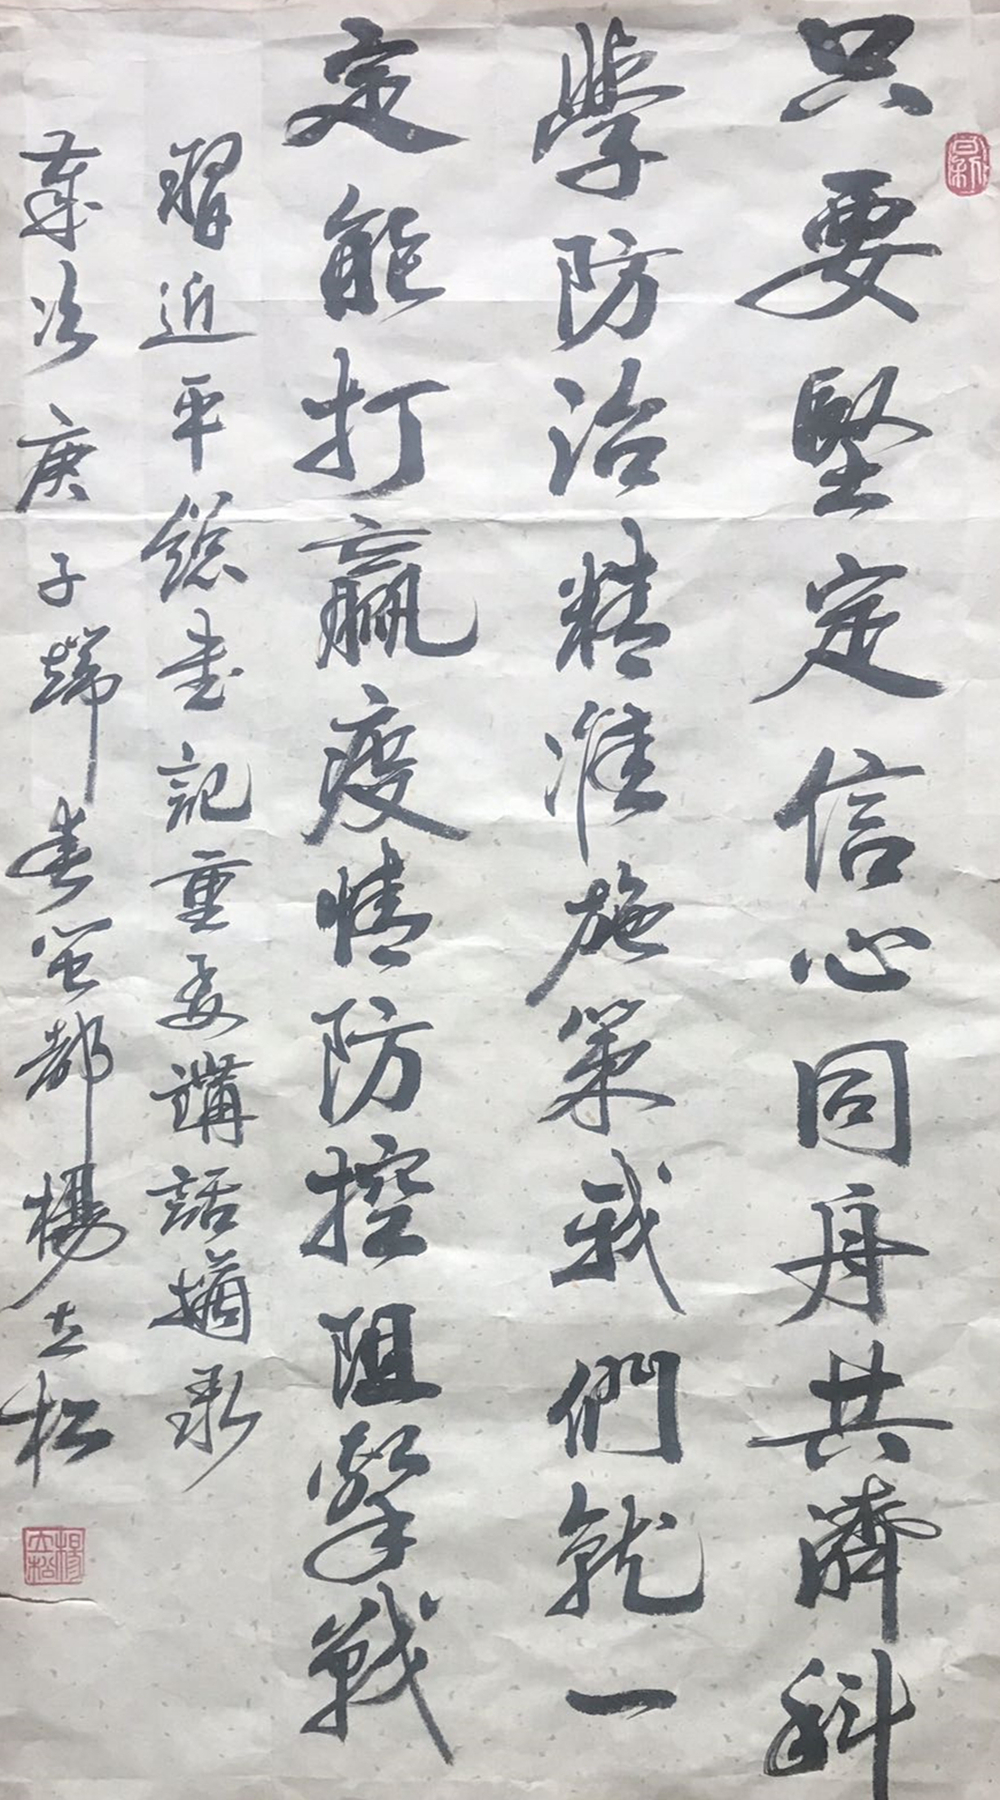 只要堅定信心同舟共濟科
學防治精准施策我們就一
定能打贏疫情防控阻擊戰
習近平總書記重要講話摘錄
歲次庚子端春閩都楊立松